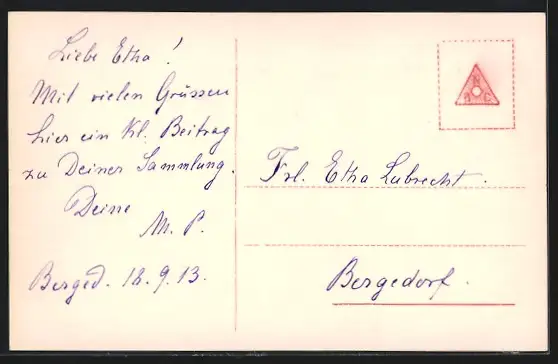 Liebe Etha!
Mit vielen Grüssen
hier ein kl. Beitrag
zu Deiner Sammlung.
Deine
M. P.
Berged. 18.9.13.
Frl. Etha Lubrecht.
Bergedorf.